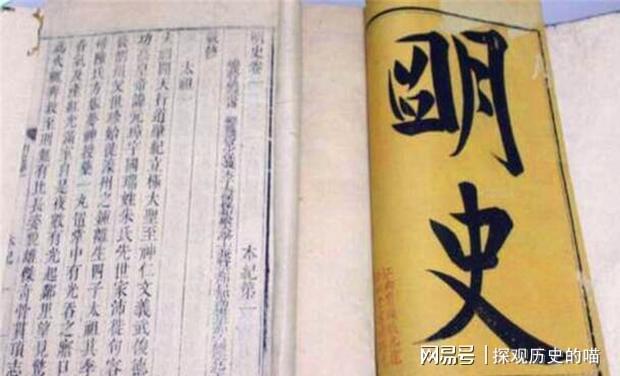 明史卷一　本紀第一
太祖
太祖開天行道肇紀立極大聖至神仁文義武俊德
功高皇帝諱元璋字國瑞姓朱氏先世家沛徙句容
徙泗州父世珍始徙濠州之鍾離生四子太祖其季
母陳氏方娠夢神授藥一丸置掌中有光吞之寤口
香氣及產紅光滿室自是夜數有光起鄰里望見驚
爲火輒奔救至則無有比長姿貌雄傑奇骨貫頂志
朙史
网易号 | 探观历史的喵